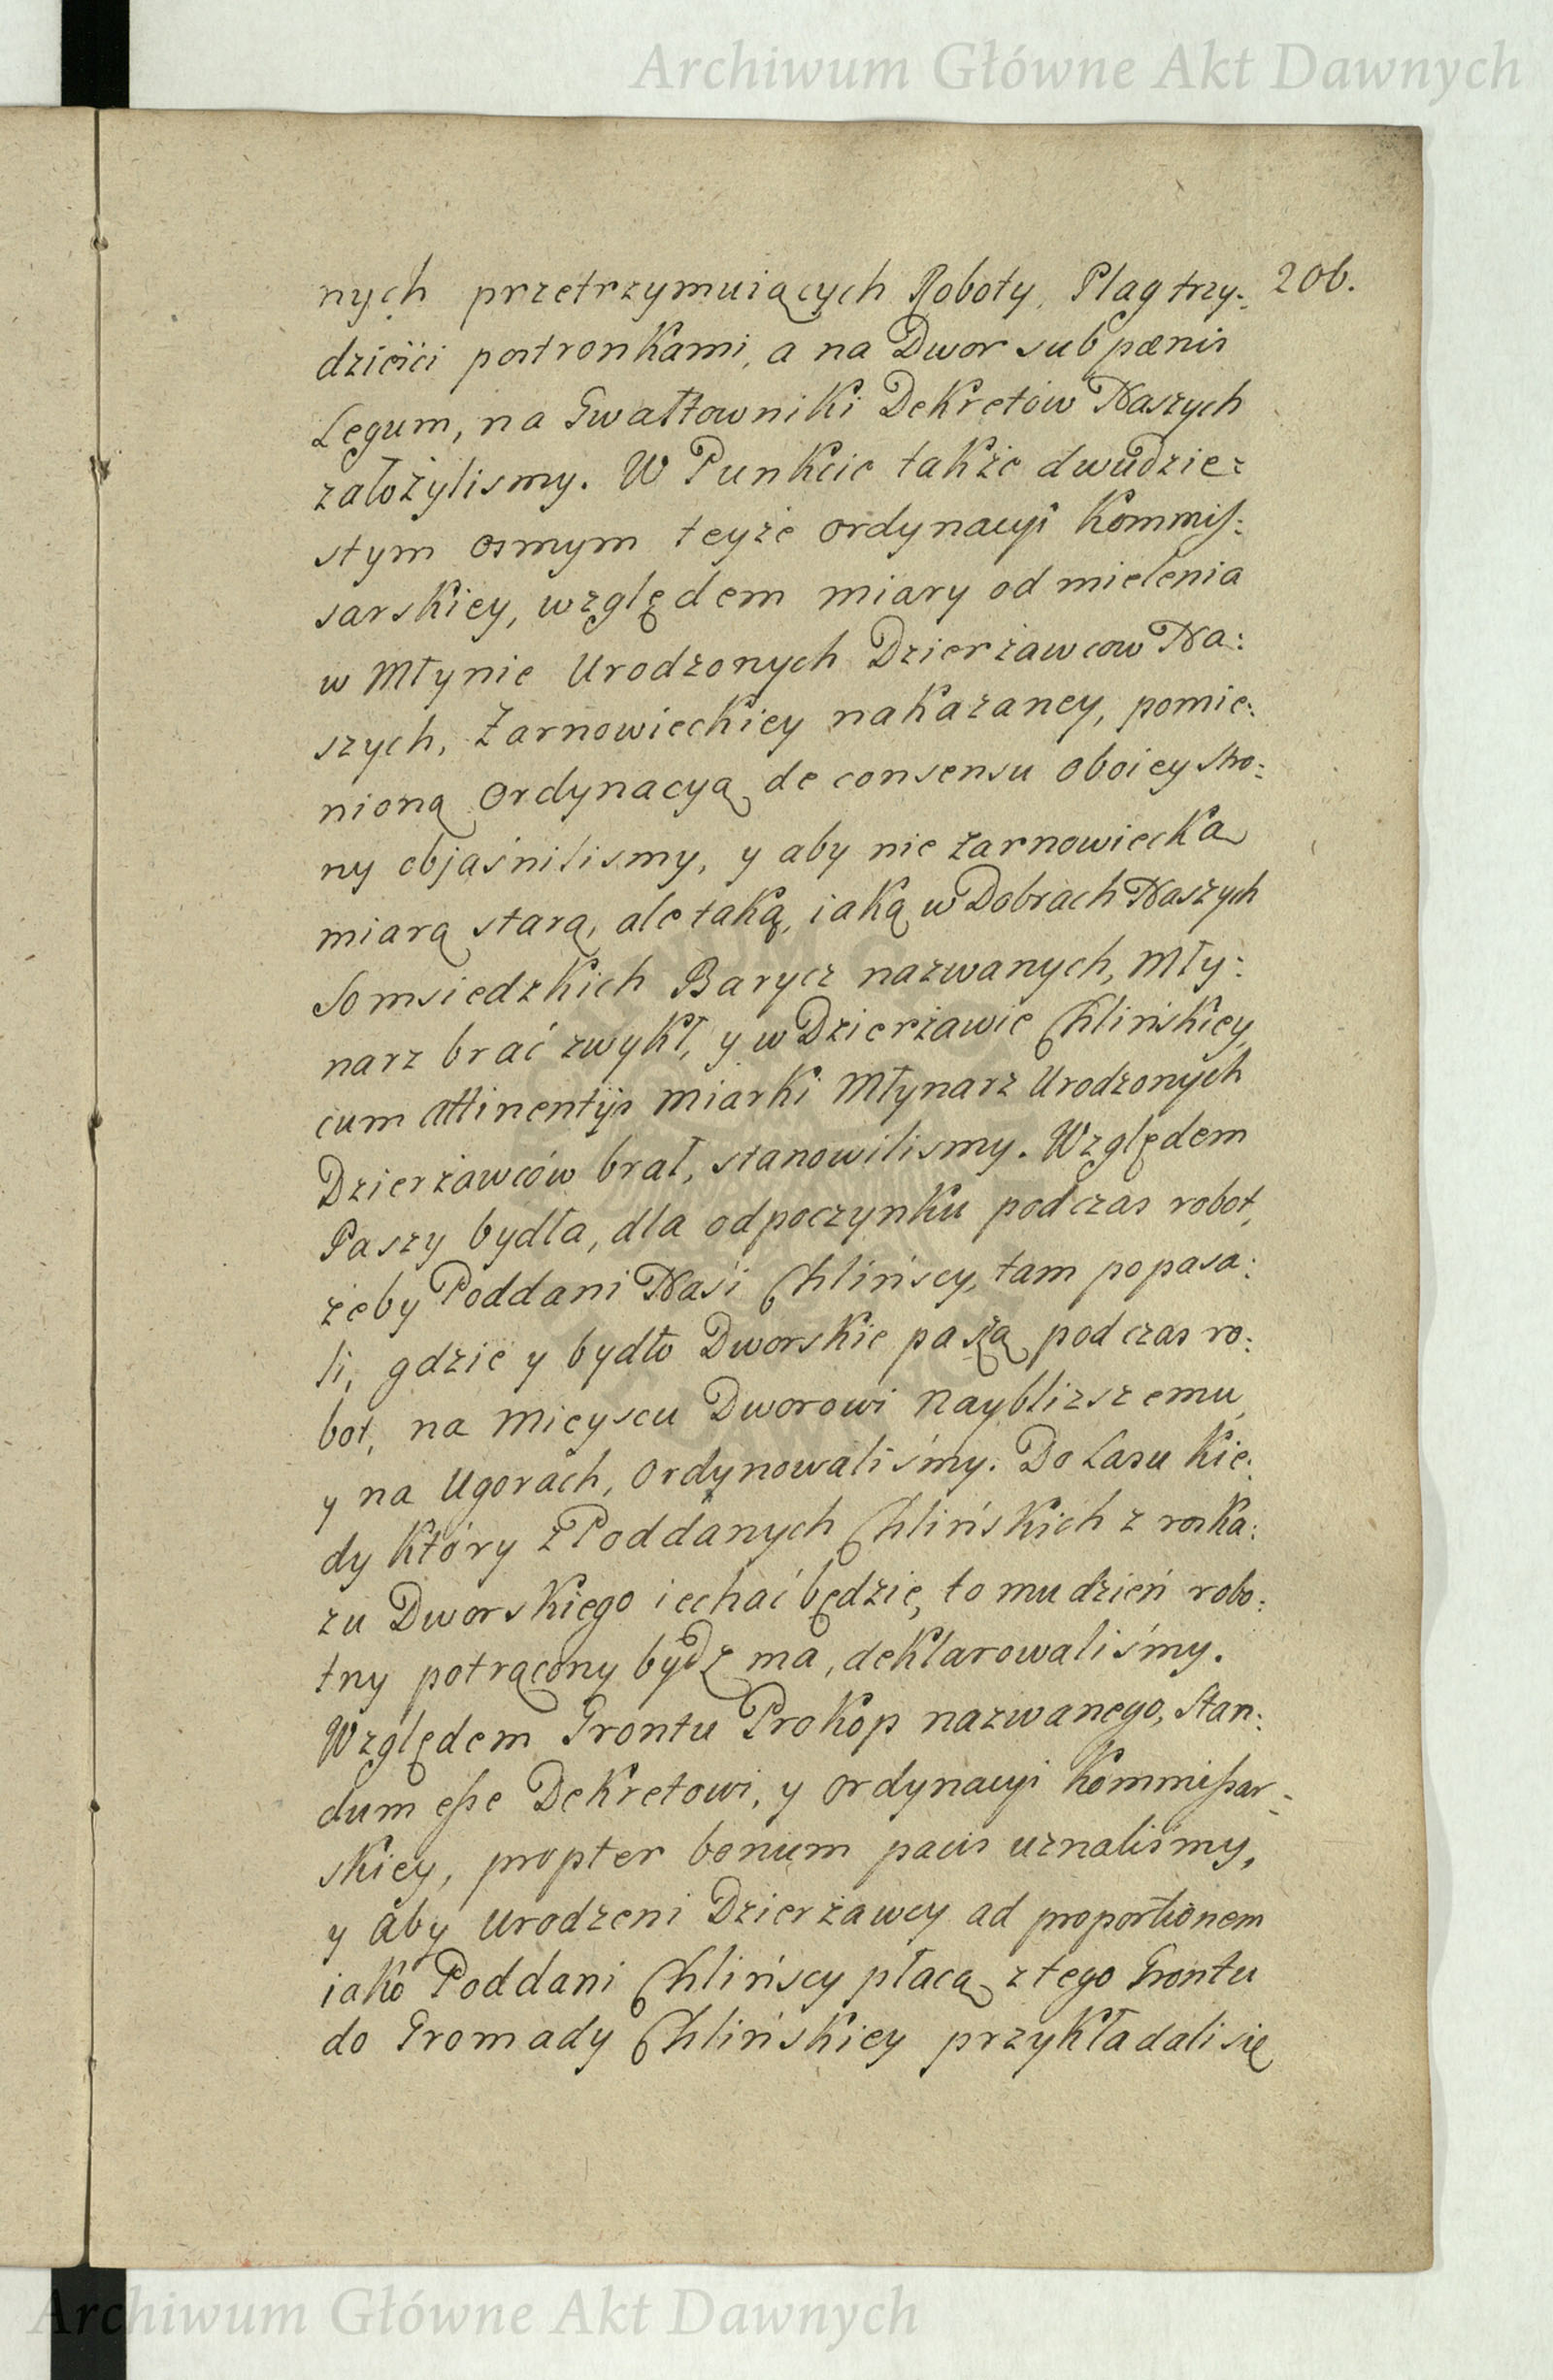 Archiwum Główne Akt Dawnych
nych przetrzymuiących Roboty, Plag trzy: 206.
dzieści postronkami, a na Dwor sub pænis
Legum, na Gwałtowniki Dekretów Naszych
założylismy. W Punkcie także dwudzie:
stym osmym teyże ordynacyi Kommis:
sarskiey, względem miary od mielenia
w Młynie Urodzonych Dzierżawcow Na:
szych, Żarnowieckiey nakazaney, pomie:
nioną Ordynacyą de consensu oboiey stro:
ny objaśnilismy, y aby nie żarnowiecką
miarą starą, ale taką, iaką w Dobrach Naszych
Somsiedzkich Barycz nazwanych, Mły:
narz brać zwykł, y w Dzierżawie Chlińskiey,
cum attinentijs miarki Młynarz Urodzonych
Dzierżawców brał, stanowilismy. Względem
Paszy bydła, dla odpoczynku podczas robot,
żeby Poddani Nasi Chlińscy, tam popasa:
li, gdzie y bydło Dworskie paszą podczas ro:
bot, na mieyscu Dworowi nayblizszemu,
y na Ugorach, ordynowaliśmy. Do Lasu kie:
dy który z Poddanych Chlińskich z roska:
zu Dworskiego iechać będzie, to mu dzień robo:
tny potrącony bydz ma, deklarowaliśmy.
Względem Grontu Prokop nazwanego, Stan:
dum esse Dekretowi, y ordynacyi Kommissar:
skiey, propter bonum pacis uznaliśmy,
y aby Urodzeni Dzierżawcy ad proportionem
iako Poddani Chlińscy płacą z tego Grontu
do Gromady Chlińskiey przykładali się
Archiwum Główne Akt Dawnych